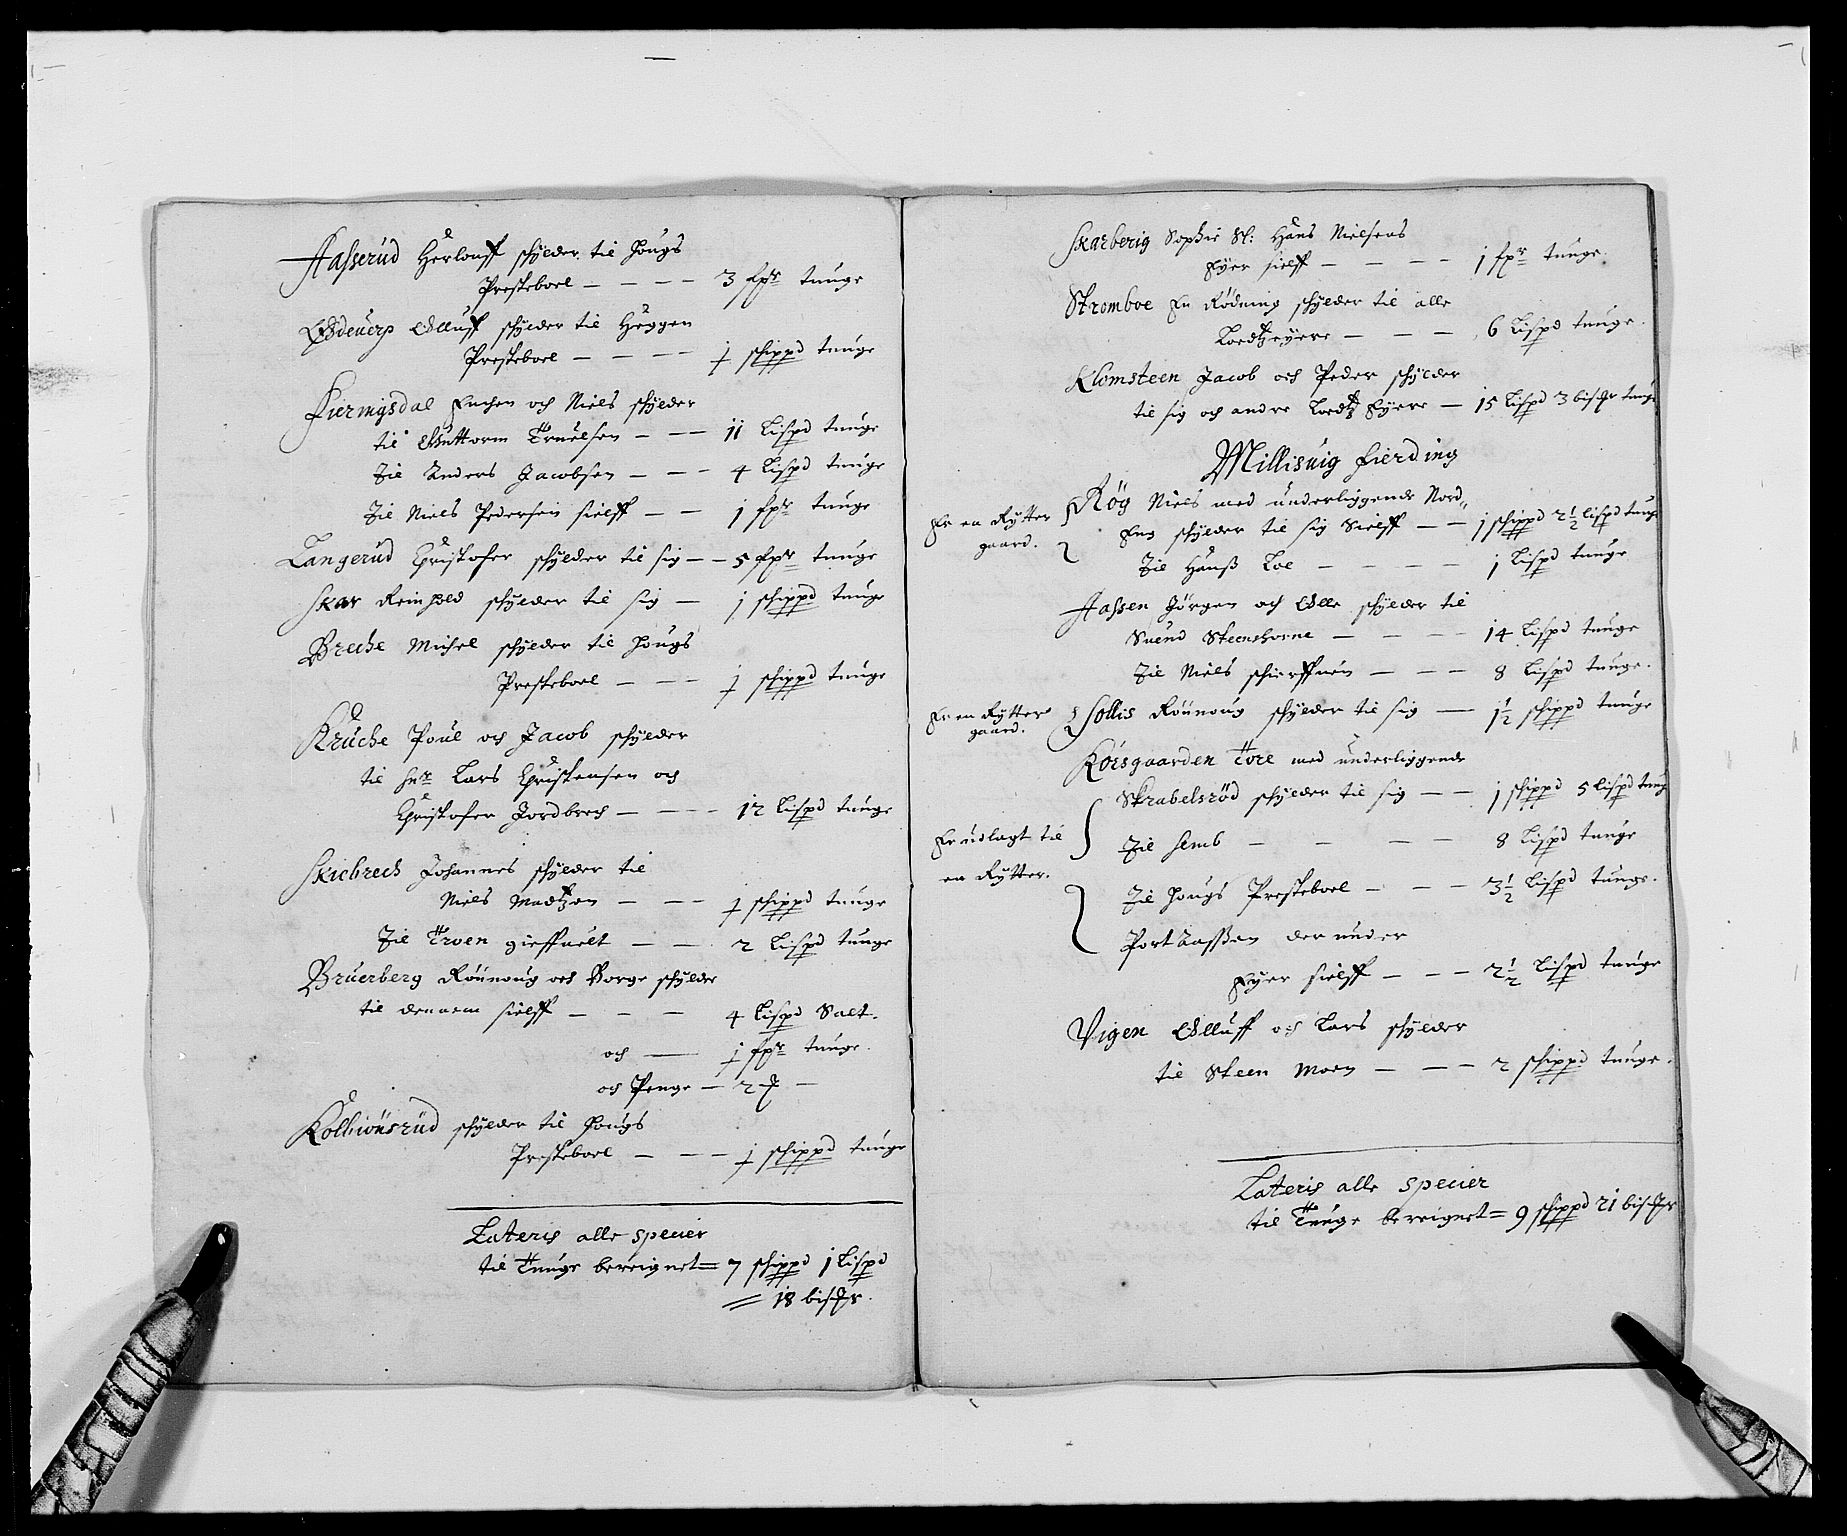 Aasserud Herlouff schylder til Hougs
Presteboel — — — — 3 fpr tunge
Oluff schylder til Heggen
Presteboel — — — — 1 schippd tunge
Fieringsdal Enchen och Niels schylder
til Guttorm Truelsen — — — 11 Lispd tunge
Til Anders Jacobsen — — — 4 Lispd tunge
Til Niels Pedersen sielff — — 1 fpr tunge
Langerud Christofer schylder til sig — — 5 fpr tunge
Skar Reinhold schylder til sig — 1 schippd tunge
Breche Michel schylder til Hougs
Presteboel — — — 1 schippd tunge
Kruche Poul och Jacob schylder
til hr Lars Christensen och
Christofer Jordbrech — — — — 12 Lispd tunge
Skiebrech Johannes schylder til
Niels Madtzen — — — 1 schippd tunge
Til Troen gieffuelt — — 2 Lispd tunge
Bruerberg Rounoug och Borge schylder
til dennem sielff — — — 4 Lispd Salt.
och — 1 fpr tunge.
och Penge — 2 —
Kolbiønsrud schylder til Hougs
Presteboel — — — 1 schippd tunge
Lateris alle specier
til Tunge bereignet = 7 schippd 1 Lispd
= 18 bismr.
Skarberig Sophie Sl: Hans Nielsens
Eyer sielff — — — — 1 fpr tunge.
Stromboe EnØdning schylder til alle
Loedtzeyere — — — 6 Lispd tunge.
Klomsteen Jacob och Peder schylder
til sig och andre Loedtz Eyere — 15 Lispd 3 bismr tunge
Millisuig Fierding
Er en Rytter
gaard.
Røg Niels med underliggende Nord„
Eng schylder til sig Sielff — — 1 schippd 2½ lispd tunge
Til Hanss Loe — — — — — 1 Lispd tunge
Aassen Jørgen och Olle schylder til
Suend Steenshorne — — — — 14 Lispd tunge
Til Niels schierffuen — — — 8 Lispd tunge.
Er en Rytter
gaard.
Sollis Rounoug schylder til sig — 1½ schippd tunge
Korsgaarden Tore med underliggende
Skrabelsrød schylder til sig — — 1 schippd 5 Lispd tunge
Er udlagt til
en Rytter.
Til Semb — — — — 8 Lispd tunge
Til Hougs Presteboel — — — 3½ Lispd tunge.
Portaassen der under
Eyer sielff — — — 2½ Lispd tunge
Vigen Olluff och Lars schylder
til Steen Moen — — — 2 schippd tunge.
Lateris alle specier
til Tunge bereignet = 9 schippd 21 bismr